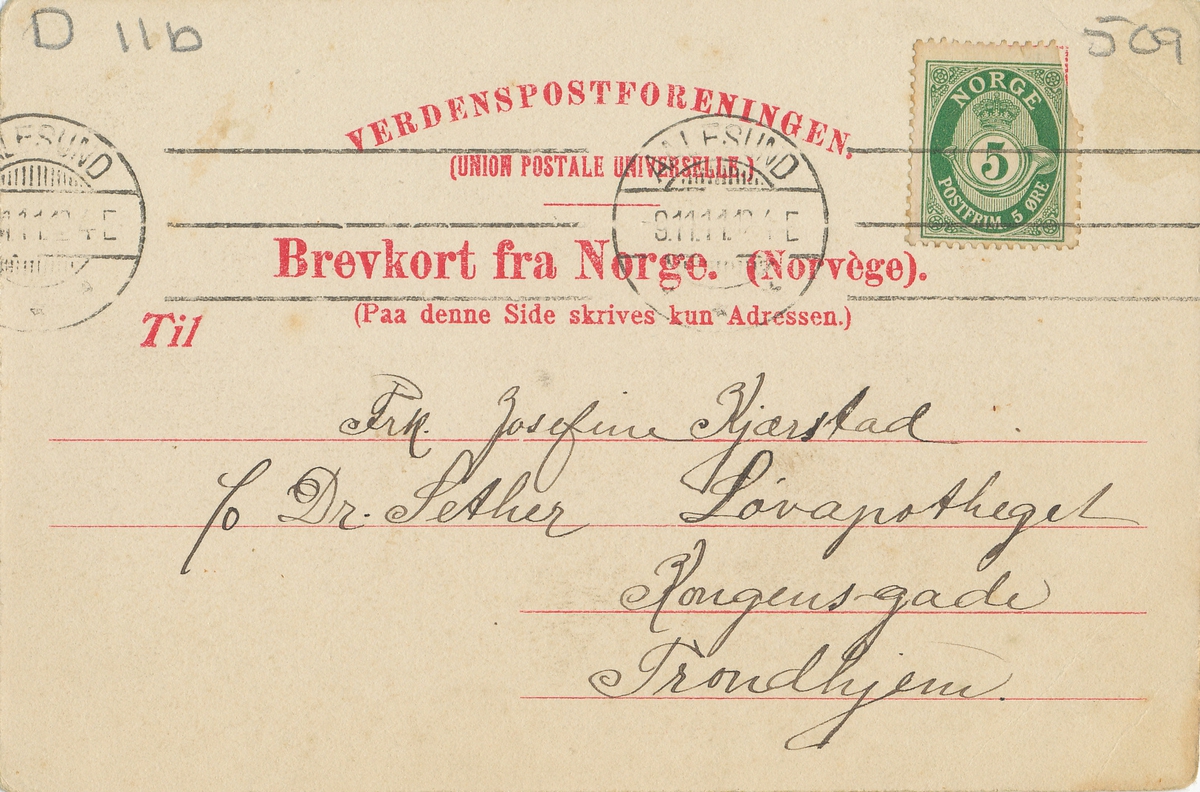 D 11b
509
VERDENSPOSTFORENINGEN.
(UNION POSTALE UNIVERSELLE.)
NORGE
5
POSTFRIM. 5 ØRE
AALESUND
Brevkort fra Norge. (Norvège).
(Paa denne Side skrives kun Adressen.)
Til
Frk. Josefine Kjærstad
c/o Dr. Sether Løvapotheget
Kongens-gade
Trondhjem.